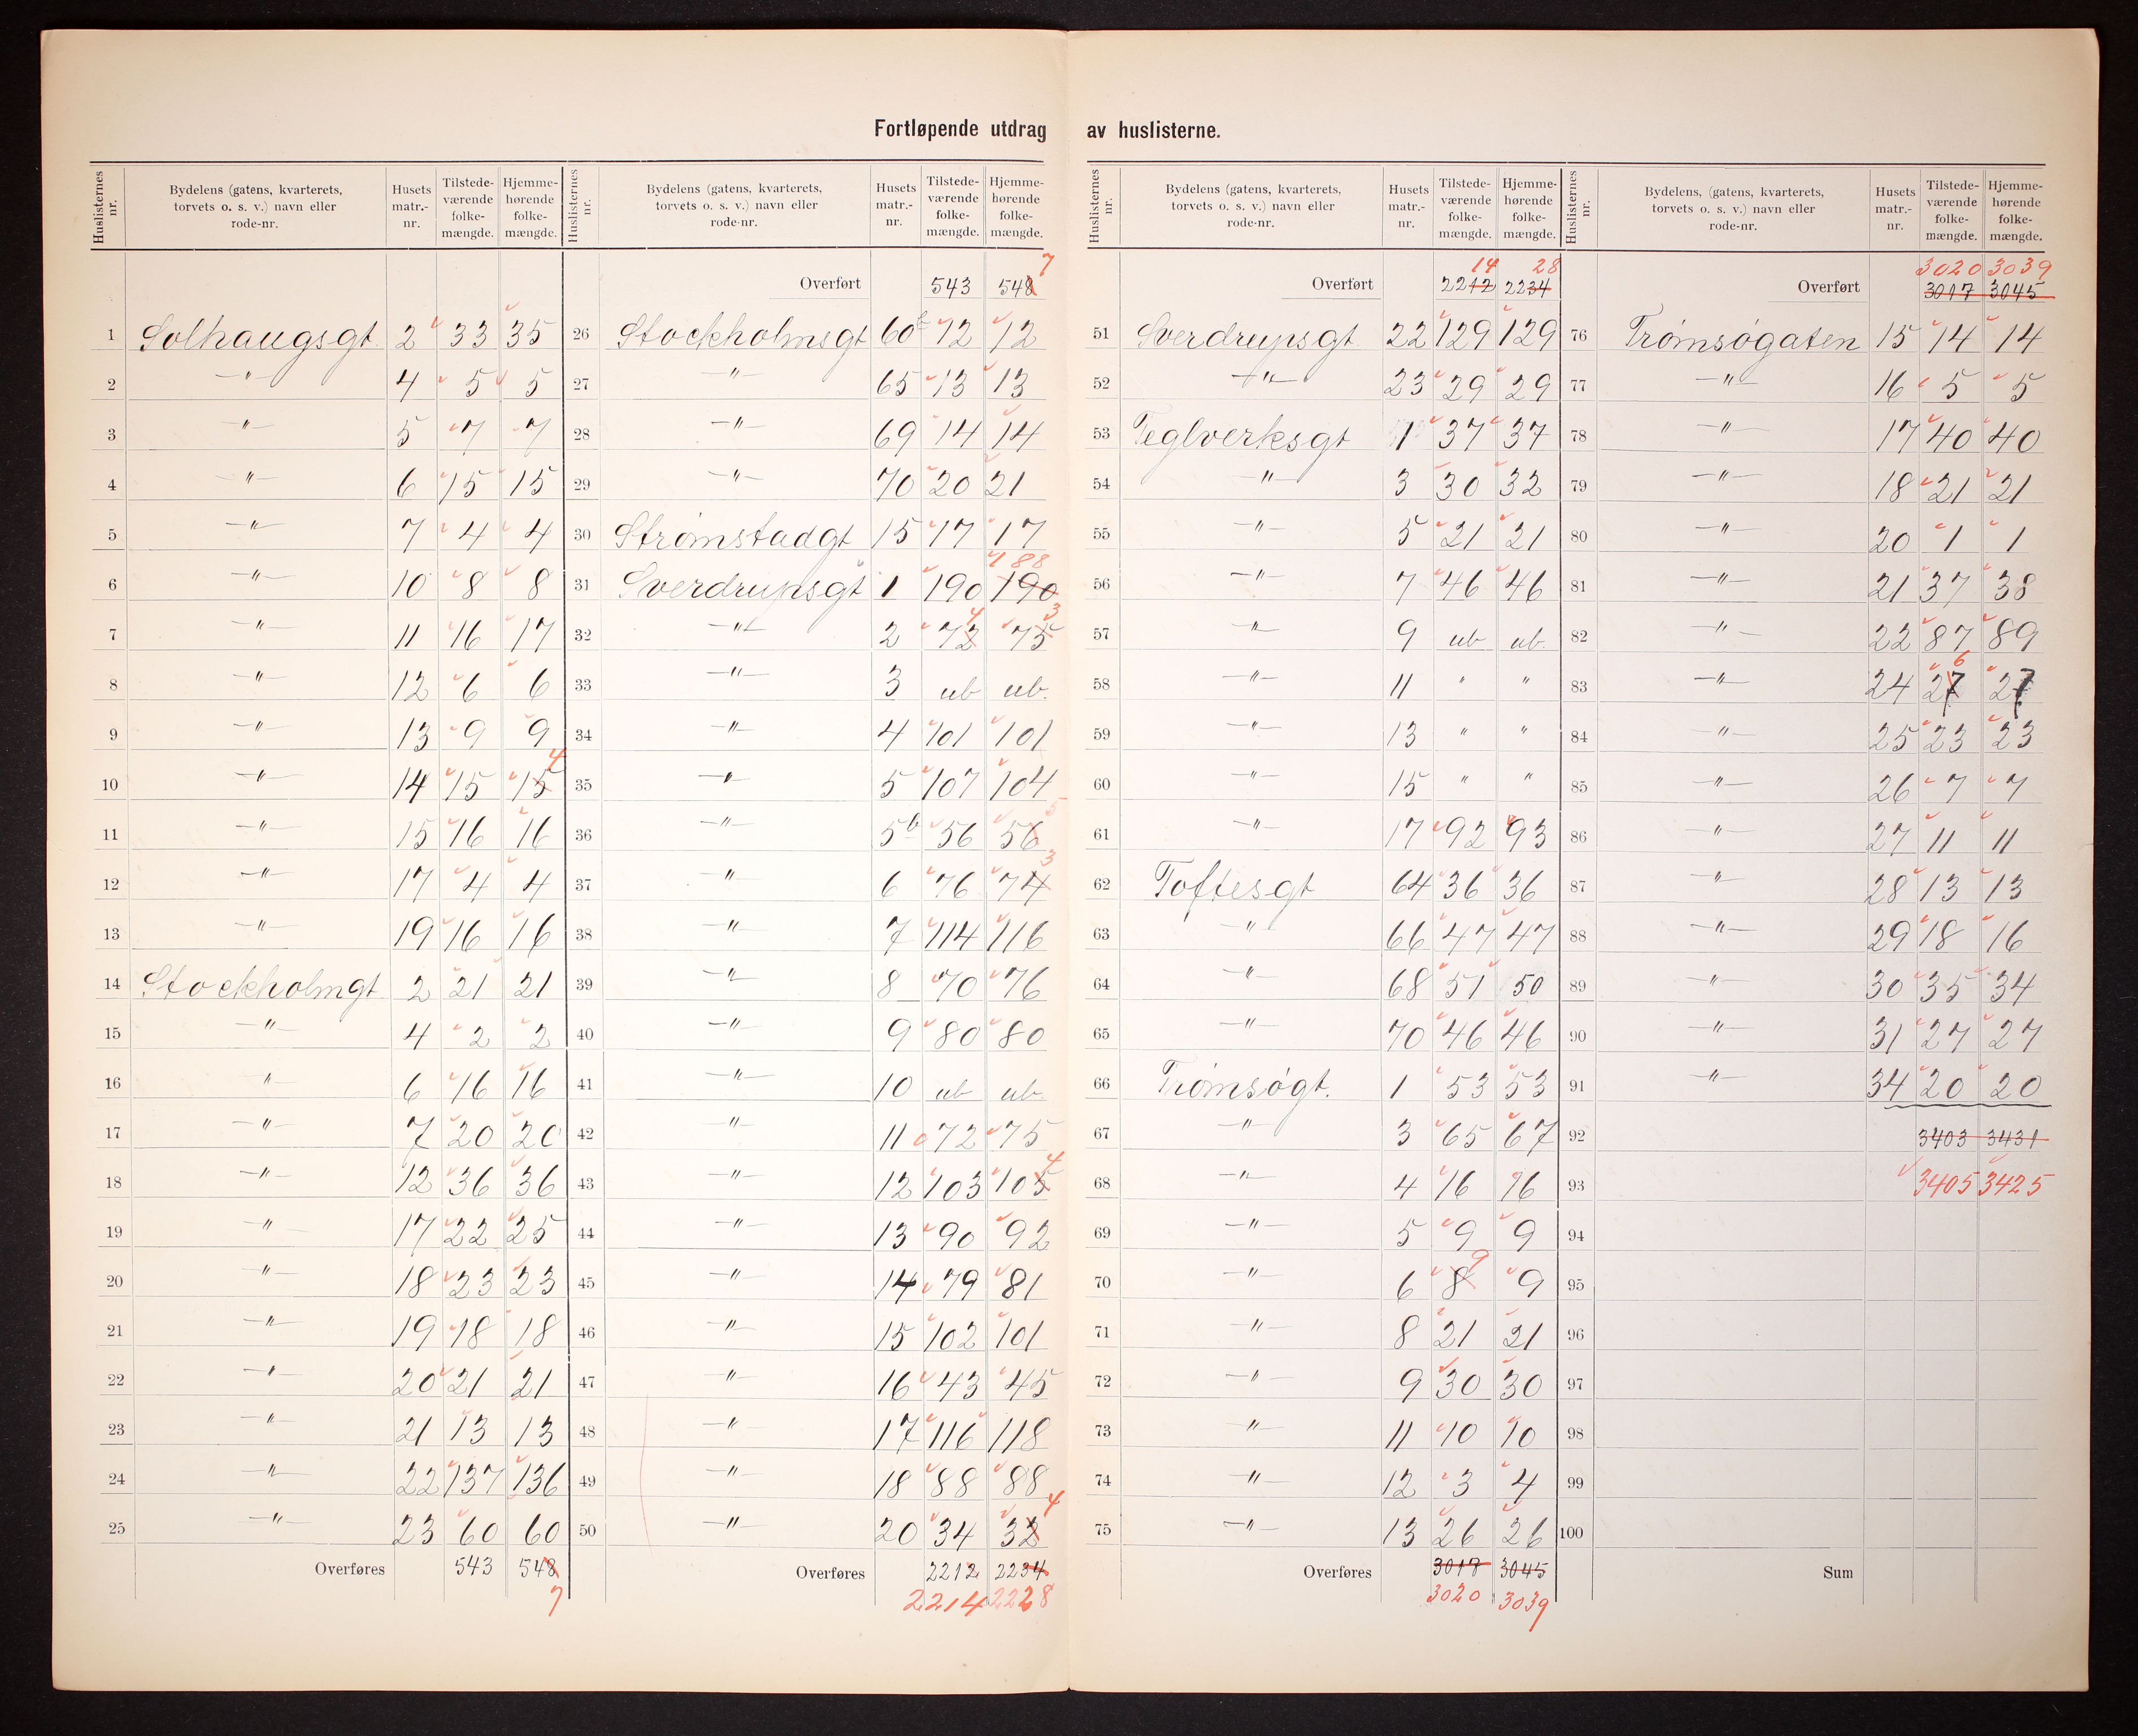 Fortløpende utdrag av huslisterne.
Huslisternes nr. | Bydelens (gatens, kvarterets, torvets o. s. v.) navn eller rode-nr. | Husets matr.-nr. | Tilstede-værende folke-mængde. | Hjemme-hørende folke-mængde.
1 Solhaugsgt 2 33 35
2 –"– 4 5 5
3 –"– 5 7 7
4 –"– 6 15 15
5 –"– 7 4 4
6 –"– 10 8 8
7 –"– 11 16 17
8 –"– 12 6 6
9 –"– 13 9 9
10 –"– 14 15 15 4
11 –"– 15 16 16
12 –"– 17 4 4
13 –"– 19 16 16
14 Stockholmgt 2 21 21
15 –"– 4 2 2
16 –"– 6 16 16
17 –"– 7 20 20
18 –"– 12 36 36
19 –"– 17 22 25
20 –"– 18 23 23
21 –"– 19 18 18
22 –"– 20 21 21
23 –"– 21 13 13
24 –"– 22 137 136
25 –"– 23 60 60
Overføres 543 548
7
Huslisternes nr. | Bydelens (gatens, kvarterets, torvets o. s. v.) navn eller rode-nr. | Husets matr.-nr. | Tilstede-værende folke-mængde. | Hjemme-hørende folke-mængde.
7
Overført 543 548
26 Stockholmsgt 60b 12 12
27 –"– 65 13 13
28 –"– 69 14 14
29 –"– 70 20 21
30 Strømstadgt 15 17 17
31 Sverdrupsgt 1 190 190 188
32 –"– 2 72 4 75 3
33 –"– 3 ub ub.
34 –"– 4 101 101
35 –"– 5 107 104
36 –"– 5b 56 56 5
37 –"– 6 76 74 3
38 –"– 7 114 116
39 –"– 8 70 76
40 –"– 9 80 80
41 –"– 10 ub ub.
42 –"– 11 72 75
43 –"– 12 103 105 4
44 –"– 13 90 92
45 –"– 14 79 81
46 –"– 15 102 101
47 –"– 16 43 45
48 –"– 17 116 118
49 –"– 18 88 88
50 –"– 20 34 32 4
Overføres 2212 2234
2214 2228
Huslisternes nr. | Bydelens (gatens, kvarterets, torvets o. s. v.) navn eller rode-nr. | Husets matr.-nr. | Tilstede-værende folke-mængde. | Hjemme-hørende folke-mængde.
14 28
Overført 2212 2234
51 Sverdrupsgt 22 129 129
52 –"– 23 29 29
53 Teglverksgt 1 37 37
54 –"– 3 30 32
55 –"– 5 21 21
56 –"– 7 46 46
57 –"– 9 ub ub.
58 –"– 11 " "
59 –"– 13 " "
60 –"– 15 " "
61 –"– 17 92 93
62 Toftesgt 64 36 36
63 –"– 66 47 47
64 –"– 68 51 50
65 –"– 70 46 46
66 Tromsøgt. 1 53 53
67 –"– 3 65 67
68 –"– 4 16 16
69 –"– 5 9 9
70 –"– 6 8 9 9
71 –"– 8 21 21
72 –"– 9 30 30
73 –"– 11 10 10
74 –"– 12 3 4
75 –"– 13 26 26
Overføres 3017 3045
3020 3039
Huslisternes nr. | Bydelens, (gatens, kvarterets, torvets o. s. v.) navn eller rode-nr. | Husets matr.-nr. | Tilstede-værende folke-mængde. | Hjemme-hørende folke-mængde.
3020 3039
Overført 3017 3045
76 Tromsøgaten 15 14 14
77 –"– 16 5 5
78 –"– 17 40 40
79 –"– 18 21 21
80 –"– 20 1 1
81 –"– 21 37 38
82 –"– 22 87 89
83 –"– 24 27 6 27
84 –"– 25 23 23
85 –"– 26 7 7
86 –"– 27 11 11
87 –"– 28 13 13
88 –"– 29 18 16
89 –"– 30 35 34
90 –"– 31 27 27
91 –"– 34 20 20
92 3403 3431
93 3405 3425
94
95
96
97
98
99
100
Sum